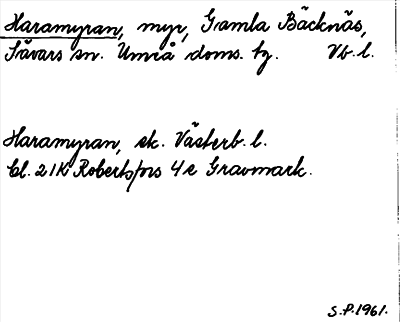 Haramyran, myr, Gamla Bäcknäs,
Sävars sn. Umeå doms. tg. Vb. l.
Haramyran, sk. Västerb. l.
bl. 21K Robertsfors 4e Gravmark.
S.P. 1961.